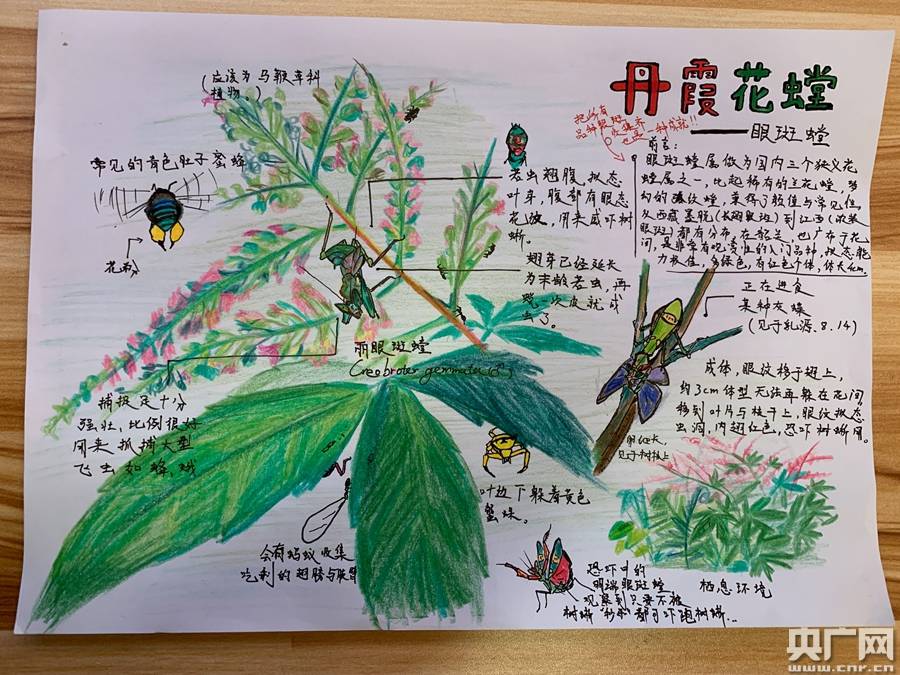 丹霞花螳
——眼斑螳
(应该为马鞭草科
植物。)
常见的青色肚子蜜蜂
把所有
品种眼斑
前言:
眼斑螳属做为国内三个狭义花
螳属之一,比起稀有的
从西藏墨脱
到江西
眼斑)都有分布,在韶关,也广布于花
间,是非常有观赏性的入门品种,拟态能
力极佳,多绿色,有红色个体,体长4cm.
若虫翅腹,拟态
叶芽,腹部有眼态
花纹,用来威吓树
蜥。
翅芽已经延长
为末龄若虫,再
蜕一次皮就成
虫了。
正在进食
某种灰蝶
(见于乳源.8.14)
丽眼斑螳
Creobroter gemmata(♂)
成体,眼纹移于翅上,
约3cm体型无法再躲在花间
移到叶片与枝干上,眼纹拟态
虫洞,内翅红色,恐吓树蜥用。
捕捉足十分
强壮,比例很好
用来抓捕大型
飞虫,如蜂,蛾
见于树枝上
叶边下躲着黄色
蟹蛛。
会有蚂蚁收集
吃剩的翅膀与肢
恐吓叶的
明端眼斑螳
观察到只要不被
树蜥"秒"都可吓跑树蜥...
栖息环境
央广网
www.cnr.cn